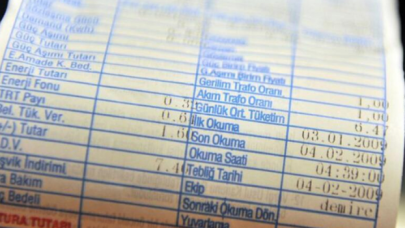 Demand (Kwh)
Güç Aşımı
Güç Tutarı
Güç Aşımı Tutarı
E.Amade K. Bed.
Enerji Tutarı
Enerji Fonu
TRT Payı
Bel. Tük. Ver.
Tutar
D.V.
şvik İndirimi
Bakım
Bedeli
TURA TUTARI
0.3
0.6
7.4
Güç Birim Fiyatı
G.Aşımı Birim Fiyatı
Gerilim Trafo Oranı
Akım Trafo Oranı 1.00
Günlük Ort. Tüketim 1.00
İlk Okuma 6.47
Son Okuma 03.01.2009
Okuma Saati 04.02.2009
Tebliğ Tarihi 04:39:00
Ekip 04-02-2009
Sonraki Okuma Dön. demire
Yuvarlama